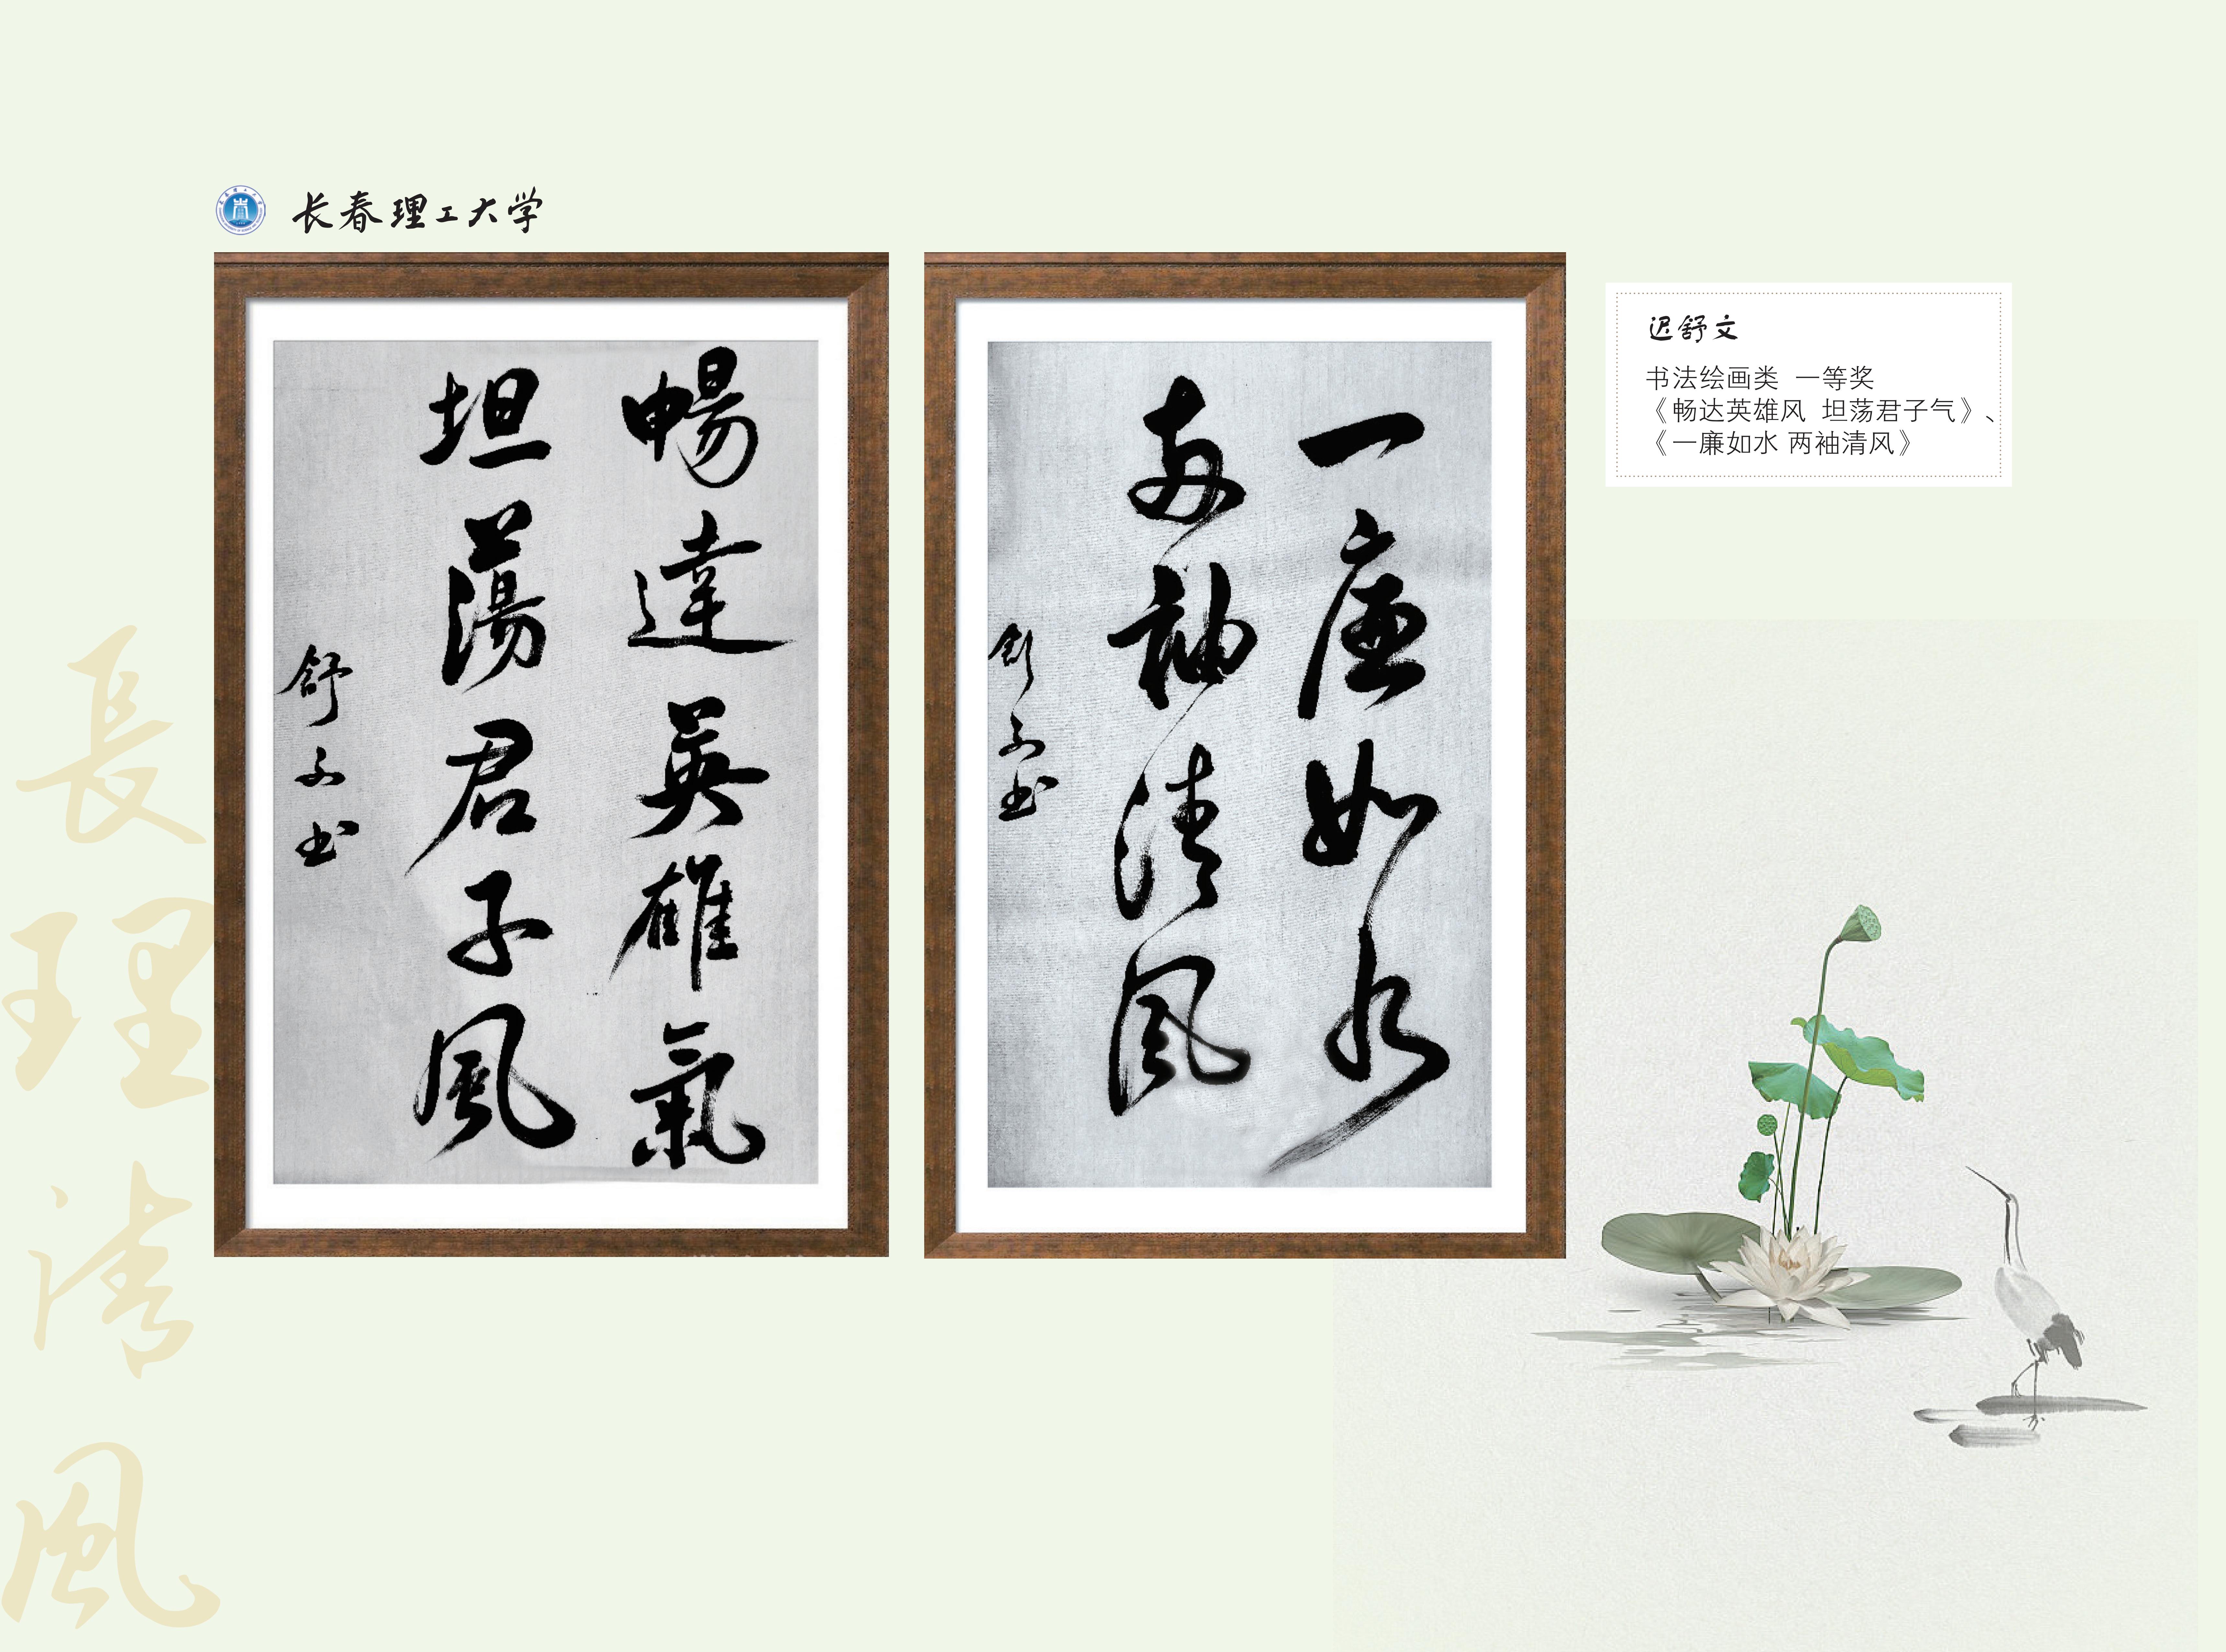 长春理工大学
暢達英雄氣
坦蕩君子風
舒文书
一廉如水
两袖清风
舒文书
迟舒文
书法绘画类 一等奖
《畅达英雄风 坦荡君子气》、
《一廉如水 两袖清风》
長理清風